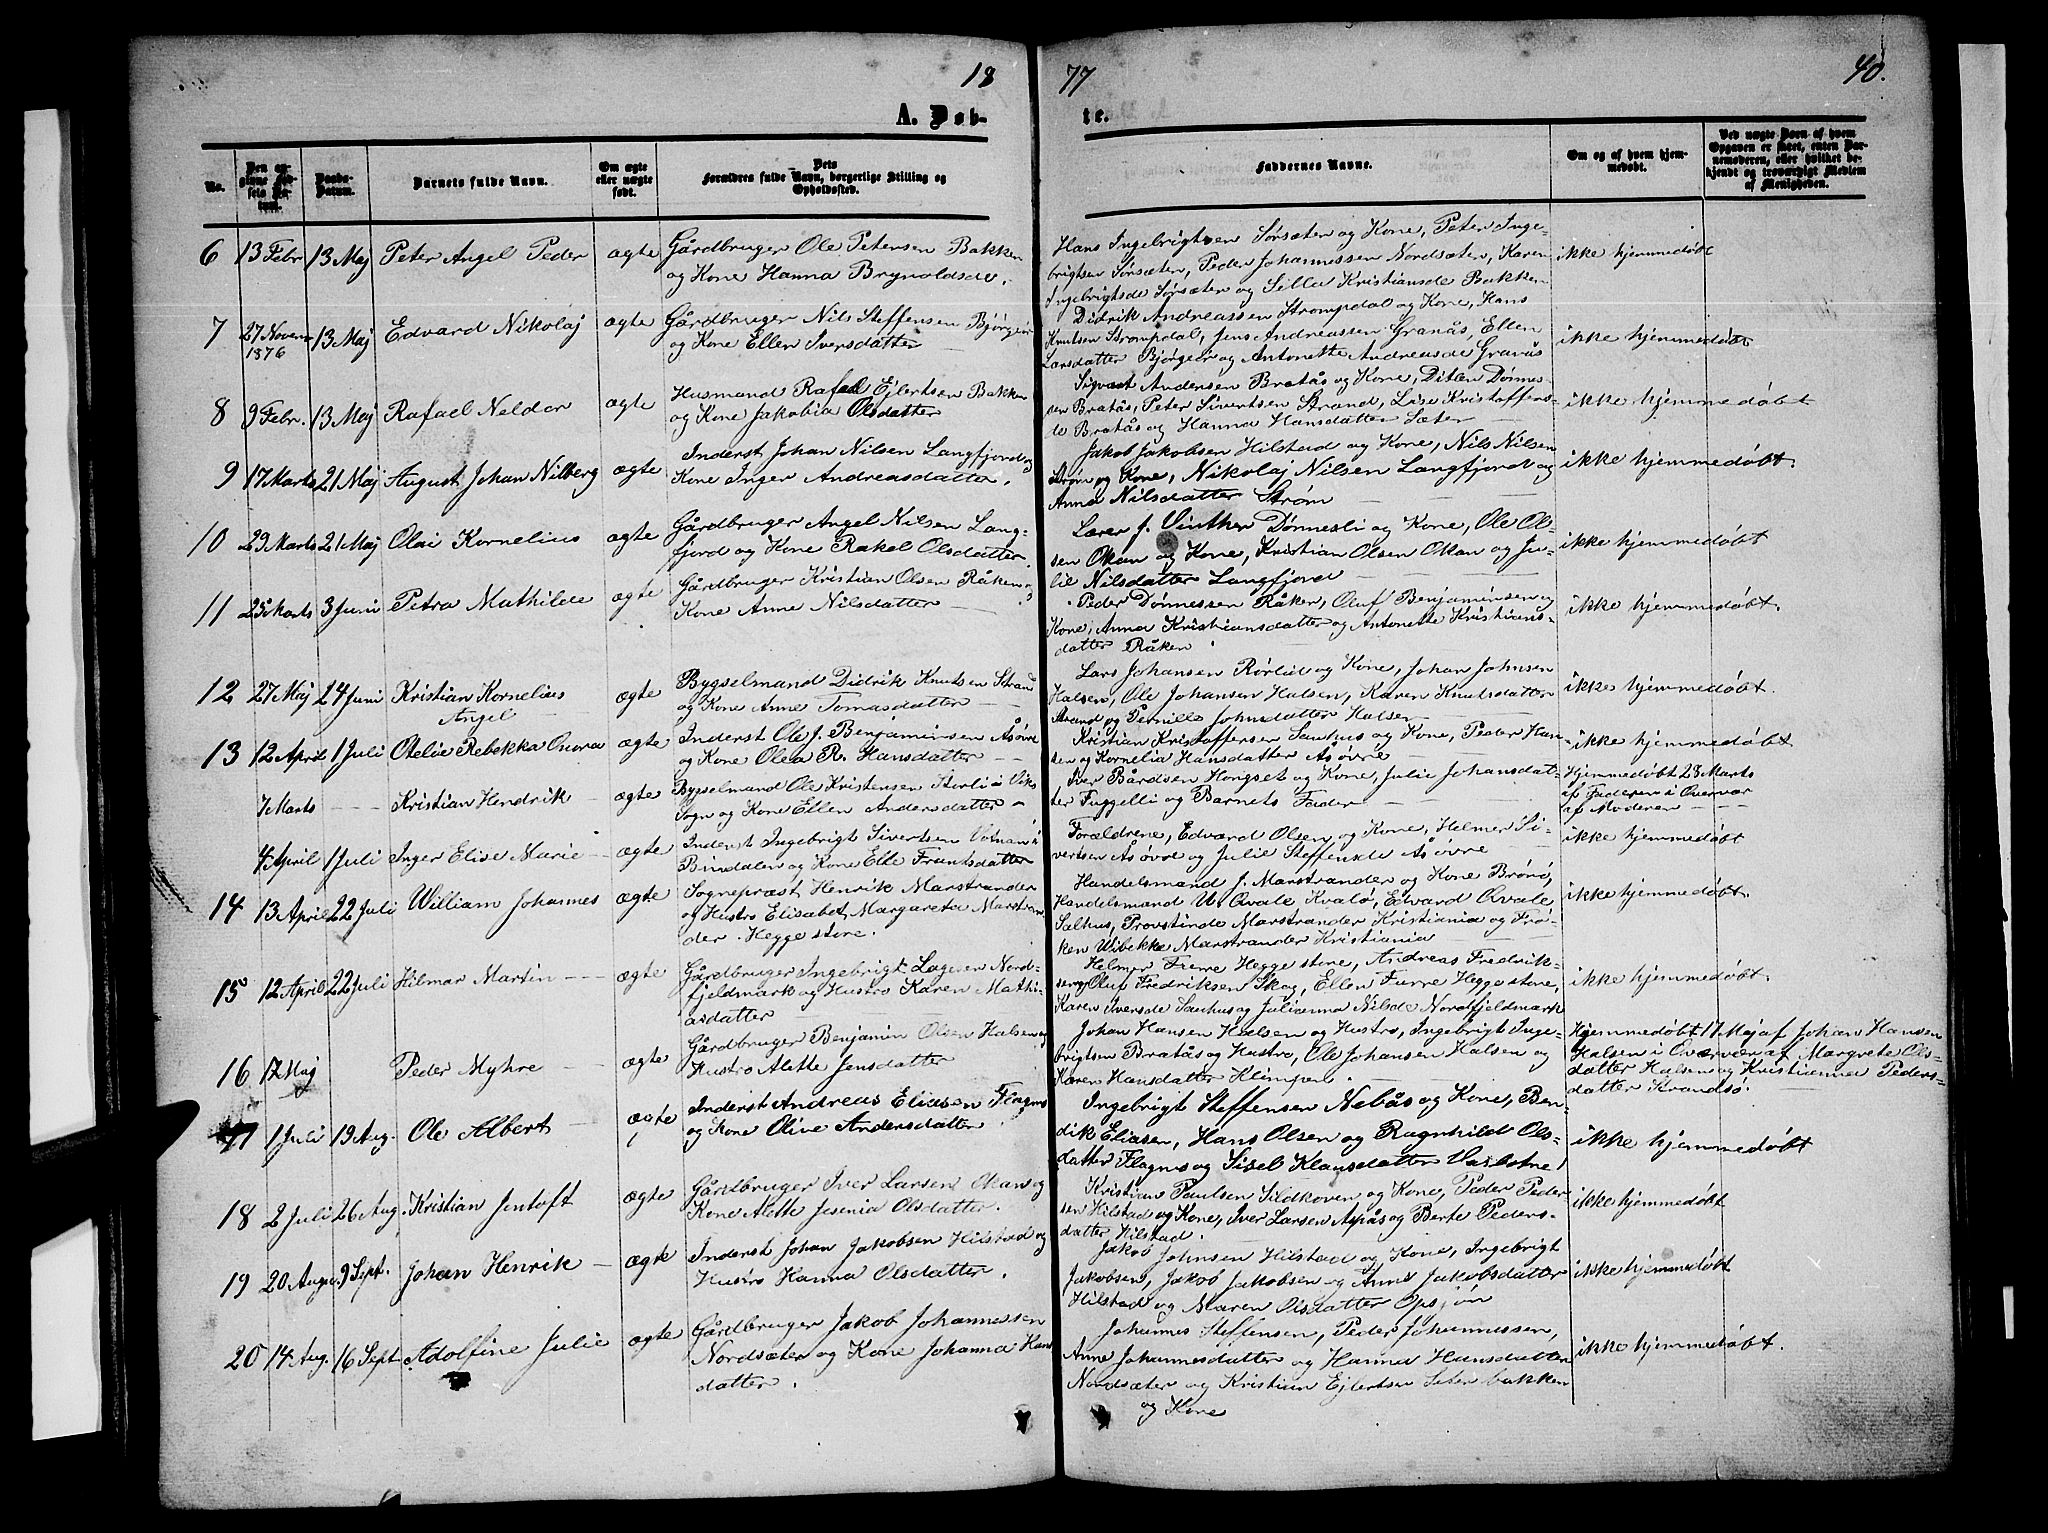 18
77
40.
A. Døb-
te.
No.
Den angivne Fødsels Datum.
Daabs-Datum.
Barnets fulde Navn.
Om ægte eller uægte født.
Dets Forældres fulde Navn, borgerlige Stilling og Opholdssted.
Faddernes Navne.
Om og af hvem hjemmedøbt.
Ved uægte Barn af hvem Opgaven er skeet, enten Barnemoderen, eller hvilket bekjendt og troværdigt Medlem af Menigheden.
6 13 Febr 13 Maj Peter Angel Peder ægte Gårdbruger Ole Petersen Bakken
og Kone Hanna Brynoldsde.
Hans Ingebrigtsen Sørsæter og Kone, Peter Inge-
brigtsen Sørsæter, Peder Johannessen Nordsæter, Karen
Ingebrigtsde Sørsæter og Silla Kristiansde Bakken
ikke hjemmedøbt
7 27 Novem 1876 13 Maj Edvard Nikolaj ægte Gårdbruger Nils Steffensen Bjørgeir
og Kone Ellen Iversdatter
Didrik Andreassen Strompdal og Kone, Hans
Knutsen Strompdal, Jens Andreassen Granås, Ellen
Larsdatter Bjørgeir og Antonette Andreasde Granås
ikke hjemmedøbt
8 9 Febr. 13 Maj Rafael Neldor ægte Husmand Rafael Ejlertsen Bakken
og Kone Jakobia Olsdatter
Sigvart Andersen Bratås og Kone, Ditlev Dønnes-
sen Bratås, Peter Sivertsen Strand, Lise Kristoffers-
de Bratås og Hanna Hansdatter Sæter
ikke hjemmedøbt
9 17 Marts 21 Maj August Johan Nilberg ægte Inderst Johan Nilsen Langfjord og
Kone Inger Andreasdatter.
Jakob Jakobsen Hilstad og Kone, Nils Nilsen
Strøm og Kone, Nikolaj Nilsen Langfjord og
Anna Nilsdatter Strøm
ikke hjemmedøbt.
10 29 Marts 21 Maj Olai Kornelius ægte Gårdbruger Angel Nilsen Lang-
fjord og Kone Rakel Olsdatter.
Lærer J. Vinther Dønnesli og Kone, Ole Ol-
sen Okan og Kone, Kristian Olsen Okan og Ju-
lie Nilsdatter Langfjord
ikke hjemmedøbt
11 25 Marts 3 Juni Petra Mathilde ægte Gårdbruger Kristian Olsen Råken og
Kone Anne Nilsdatter
Peder Dønnessen Råken, Oluf Benjaminsen og
Kone, Anna Kristiansdatter og Antonette Kristians-
datter Råken
ikke hjemmedøbt.
12 27 Maj 24 Juni Kristian Kornelius
Angel
ægte Bygselmand Didrik Knutsen Strand
og Kone Anne Tomasdatter
Lars Johansen Rørlid og Kone, Johan Johnsen
Halsen, Ole Johansen Halsen, Karen Knutsdatter
Strand og Pernille Johnsdatter Halsen
ikke hjemmedøbt.
13 12 April 1 Juli Otelie Rebekka Onora ægte Inderst Ole J. Benjaminsen Åsøvre
og Kone Olea R. Hansdatter
Kristian Kristoffersen Sauhus og Kone, Peder Han-
sen og Kornelia Hansdatter Åsøvre
ikke hjemmedøbt
7 Marts Kristian Hendrik ægte Bygselmand Ole Kristensen Storli i Viks
Sogn og Kone Ellen Andersdatter
Iver Bårdsen Horigset og Kone, Julie Johansdat-
ter Fuggelli og Barnets Fader
Hjemmedøbt 28 Marts
af Faderen i Overvær
af Moderen
4 April 1 Juli Inger Elise Marie ægte Inderst Ingebrigt Sivertsen i
Bindalen og Kone Elle Frantsdatter
Forældrene, Edvard Olsen og Kone, Helmer Si-
vertsen Åsøvre og Julie Steffensde Åsøvre
ikke hjemmedøbt
14 13 April 22 Juli William Johannes ægte Sognepræst Henrik Marstrander
og Hustro Elisabet Margareta Marstran-
der. Heggestore.
Handelsmand J. Marstrander og Kone Brønø,
Handelsmand U. Qvale Kvalø, Edvard Qvale
Salhus, Provstinde Marstrander Kristiania og Frø-
ken Wibekke Marstrander Kristiania
ikke hjemmedøbt.
15 12 April 22 Juli Hilmar Martin ægte Gårdbruger Ingebrigt Lagesen Nord-
fjeldmark og Hustro Karen Mathi-
asdatter
Helmer Furre Heggestore, Andreas Fredrik-
sen og Oluf Fredriksen Skog, Ellen Furre Heggestore,
Karen Iversde Sauhus og Julianna Nilsde Nordfjeldmark
ikke hjemmedøbt.
16 12 Maj Peder Myhre ægte Gårdbruger Benjamin Olsen Halsen og
Hustro Alette Jensdatter
Johan Hansen Halsen og Hustro, Ingebrigt Inge-
brigtsen Bratås og Hustro, Ole Johansen Halsen og
Karen Hansdatter Klimpen.
Hjemmedøbt 17 Maj af Johan Hansen
Halsen i Overvær af Margrete Ols-
datter Halsen og Kristianna Peders-
datter Krandsø.
17 1 Juli 19 Aug. Ole Albert ægte Inderst Andreas Eliasen Flagnus
og Kone Olive Andersdatter.
Ingebrigt Steffensen Nebås og Kone, Ben-
dik Eliasen, Hans Olsen og Ragnhild Ols-
datter Flagnus og Sisel Klausdatter
ikke hjemmedøbt
18 2 Juli 26 Aug. Kristian Jentoft ægte Gårdbruger Iver Larsen Okan og
Kone Alette Jesenia Olsdatter.
Kristian Paulsen Sildkoven og Kone, Peder Peder-
sen Hilstad og Kone, Iver Larsen Aspås og Berte Peders-
datter Hilstad.
ikke hjemmedøbt
19 20 Augu. 9 Sept. Johan Henrik ægte Inderst Johan Jakobsen Hilstad og
Hustro Hanna Olsdatter.
Jakob Johnsen Hilstad og Kone, Ingebrigt
Jakobsen, Jakob Jakobsen og Anne Jakobsdatter
Hilstad og Maren Olsdatter Opsjøn
ikke hjemmedøbt
20 14 Aug. 16 Sept. Adolfine Julie ægte Gårdbruger Jakob Johannessen
Nordsæter og Kone Johanna Hans
datter.
Johannes Steffensen, Peder Johannessen,
Anne Johannesdatter og Hanna Hansdatter
Nordsæter og Kristian Ejlertsen Seterbakken
og Kone
ikke hjemmedøbt.